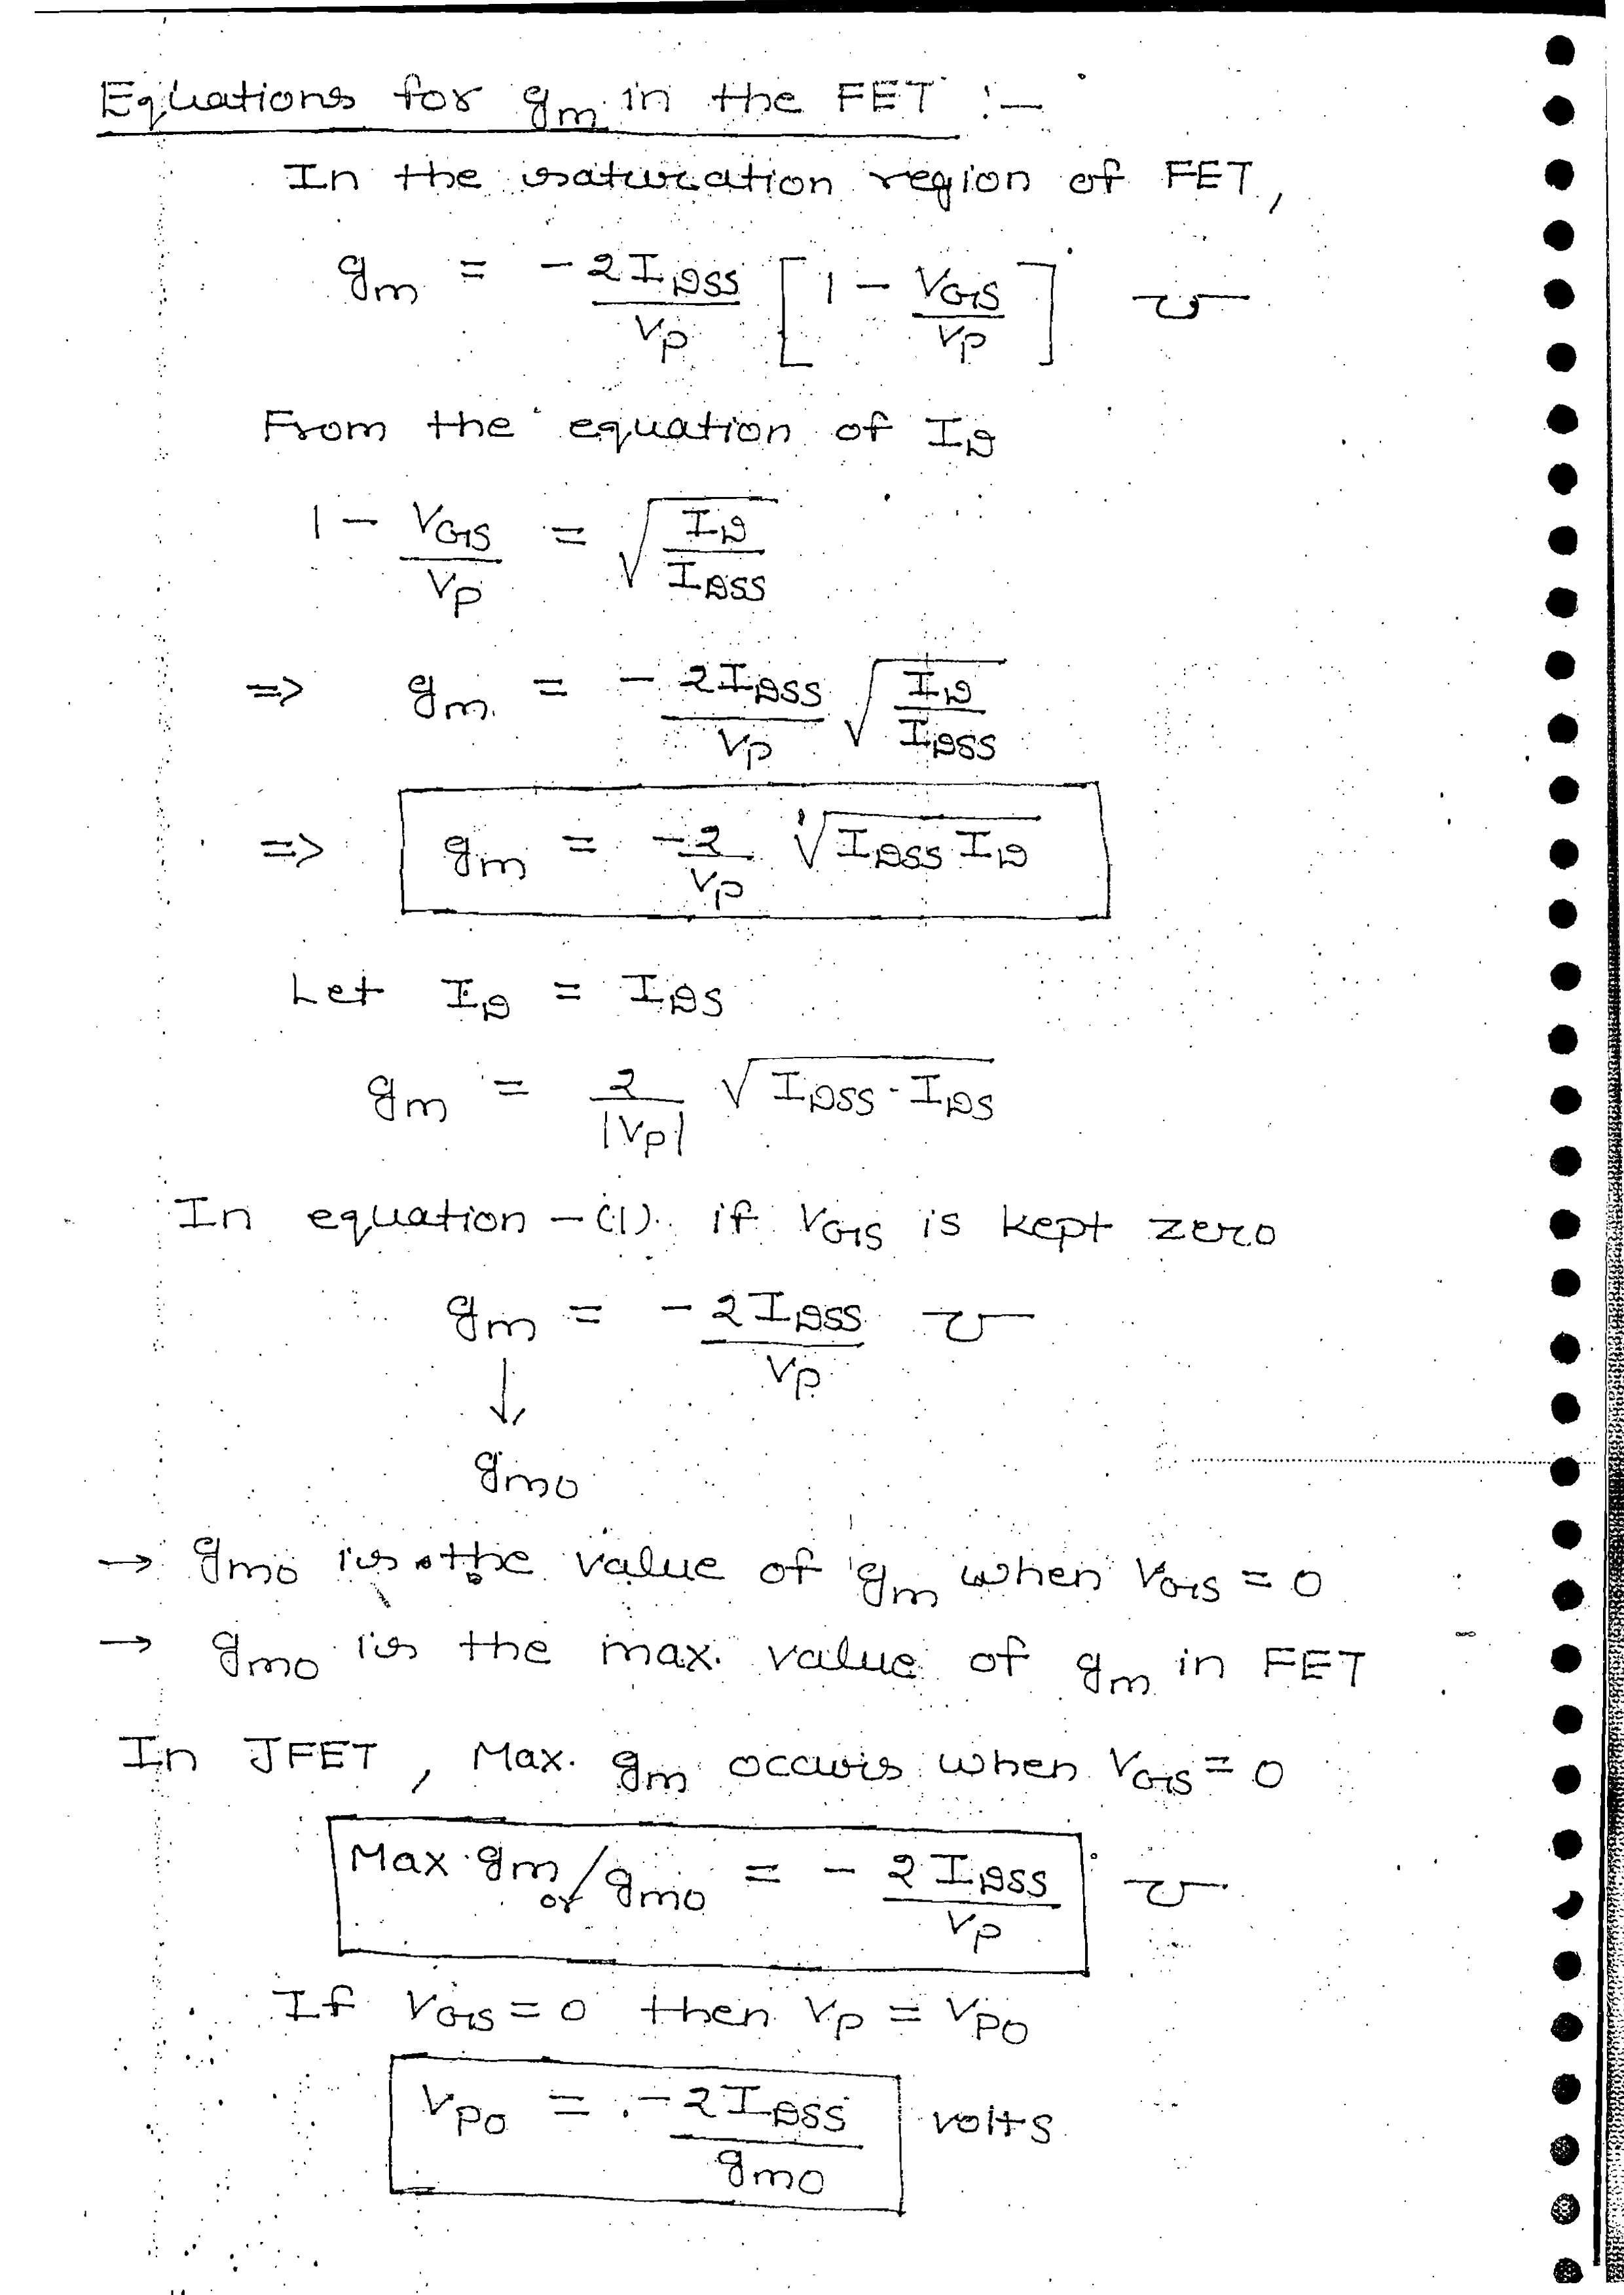 Equations for gm in the FET :-
In the saturation region of FET,
gm = -2IDSS/VP [1 - VGS/VP] ℧
From the equation of ID
1 - VGS/VP = √(ID/IDSS)
=> gm = -2IDSS/VP √(ID/IDSS)
=> gm = -2/VP √(IDSS ID)
Let ID = IDS
gm = 2/|VP| √(IDSS · IDS)
In equation -(1). if VGS is kept zero
gm = -2IDSS/VP ℧
↓
gmo
→ gmo is the value of gm when VGS = 0
→ gmo is the max. value of gm in FET
In JFET, Max. gm occurs when VGS = 0
Max gm/or gmo = -2IDSS/VP ℧
If VGS = 0 then VP = VPO
VPO = -2IDSS/gmo volts